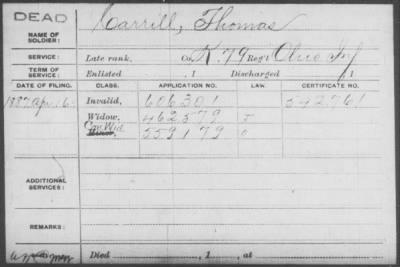 DEAD
NAME OF SOLDIER: Carrill, Thomas
SERVICE: Late rank, Co. K, 79 Reg't Ohio Inf
TERM OF SERVICE: Enlisted , 1 Discharged , 1
DATE OF FILING. CLASS. APPLICATION NO. LAW. CERTIFICATE NO.
1887 Apr 16 Invalid, 606301 542761
Widow, 462579
Con Wid
Minor, 559179
ADDITIONAL SERVICES:
REMARKS:
Died , 1 , at